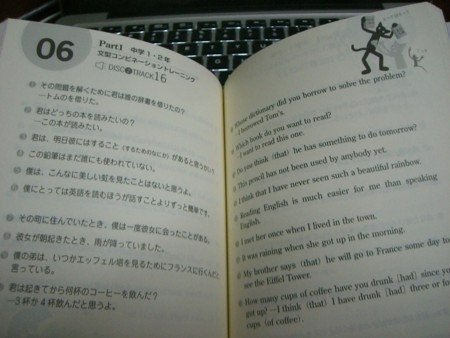 06
Part1 中学1・2年
文型コンビネーショントレーニング
DISC 2 TRACK 16
その問題を解くために君は誰の辞書を借りたの?
—トムのを借りた。
君はどっちの本を読みたいの?
—この本が読みたい。
君は、明日彼にはすること(するためのなにか)があると思うかい?
この鉛筆はまだ誰にも使われていない。
僕は、こんなに美しい虹を見たことはないと思うよ。
僕にとっては英語を読むほうが話すことよりずっと簡単です。
その町に住んでいたとき、僕は一度彼女に会ったことがある。
彼女が朝起きたとき、雨が降っていました。
僕の弟は、いつかエッフェル塔を見るためにフランスに行くんだと
言っている。
君は起きてから何杯のコーヒーを飲んだ?
—3杯か4杯飲んだと思うよ。
Whose dictionary did you borrow to solve the problem?
I borrowed Tom's.
Which book do you want to read?
I want to read this one.
Do you think (that) he has something to do tomorrow?
This pencil has not been used by anybody yet.
I think that I have never seen such a beautiful rainbow.
Reading English is much easier for me than speaking
English.
I met her once when I lived in the town.
It was raining when she got up in the morning.
My brother says (that) he will go to France some day to
see the Eiffel Tower.
How many cups of coffee have you drunk [had] since you
got up? – I think (that) I have drunk [had] three or four
cups (of coffee).